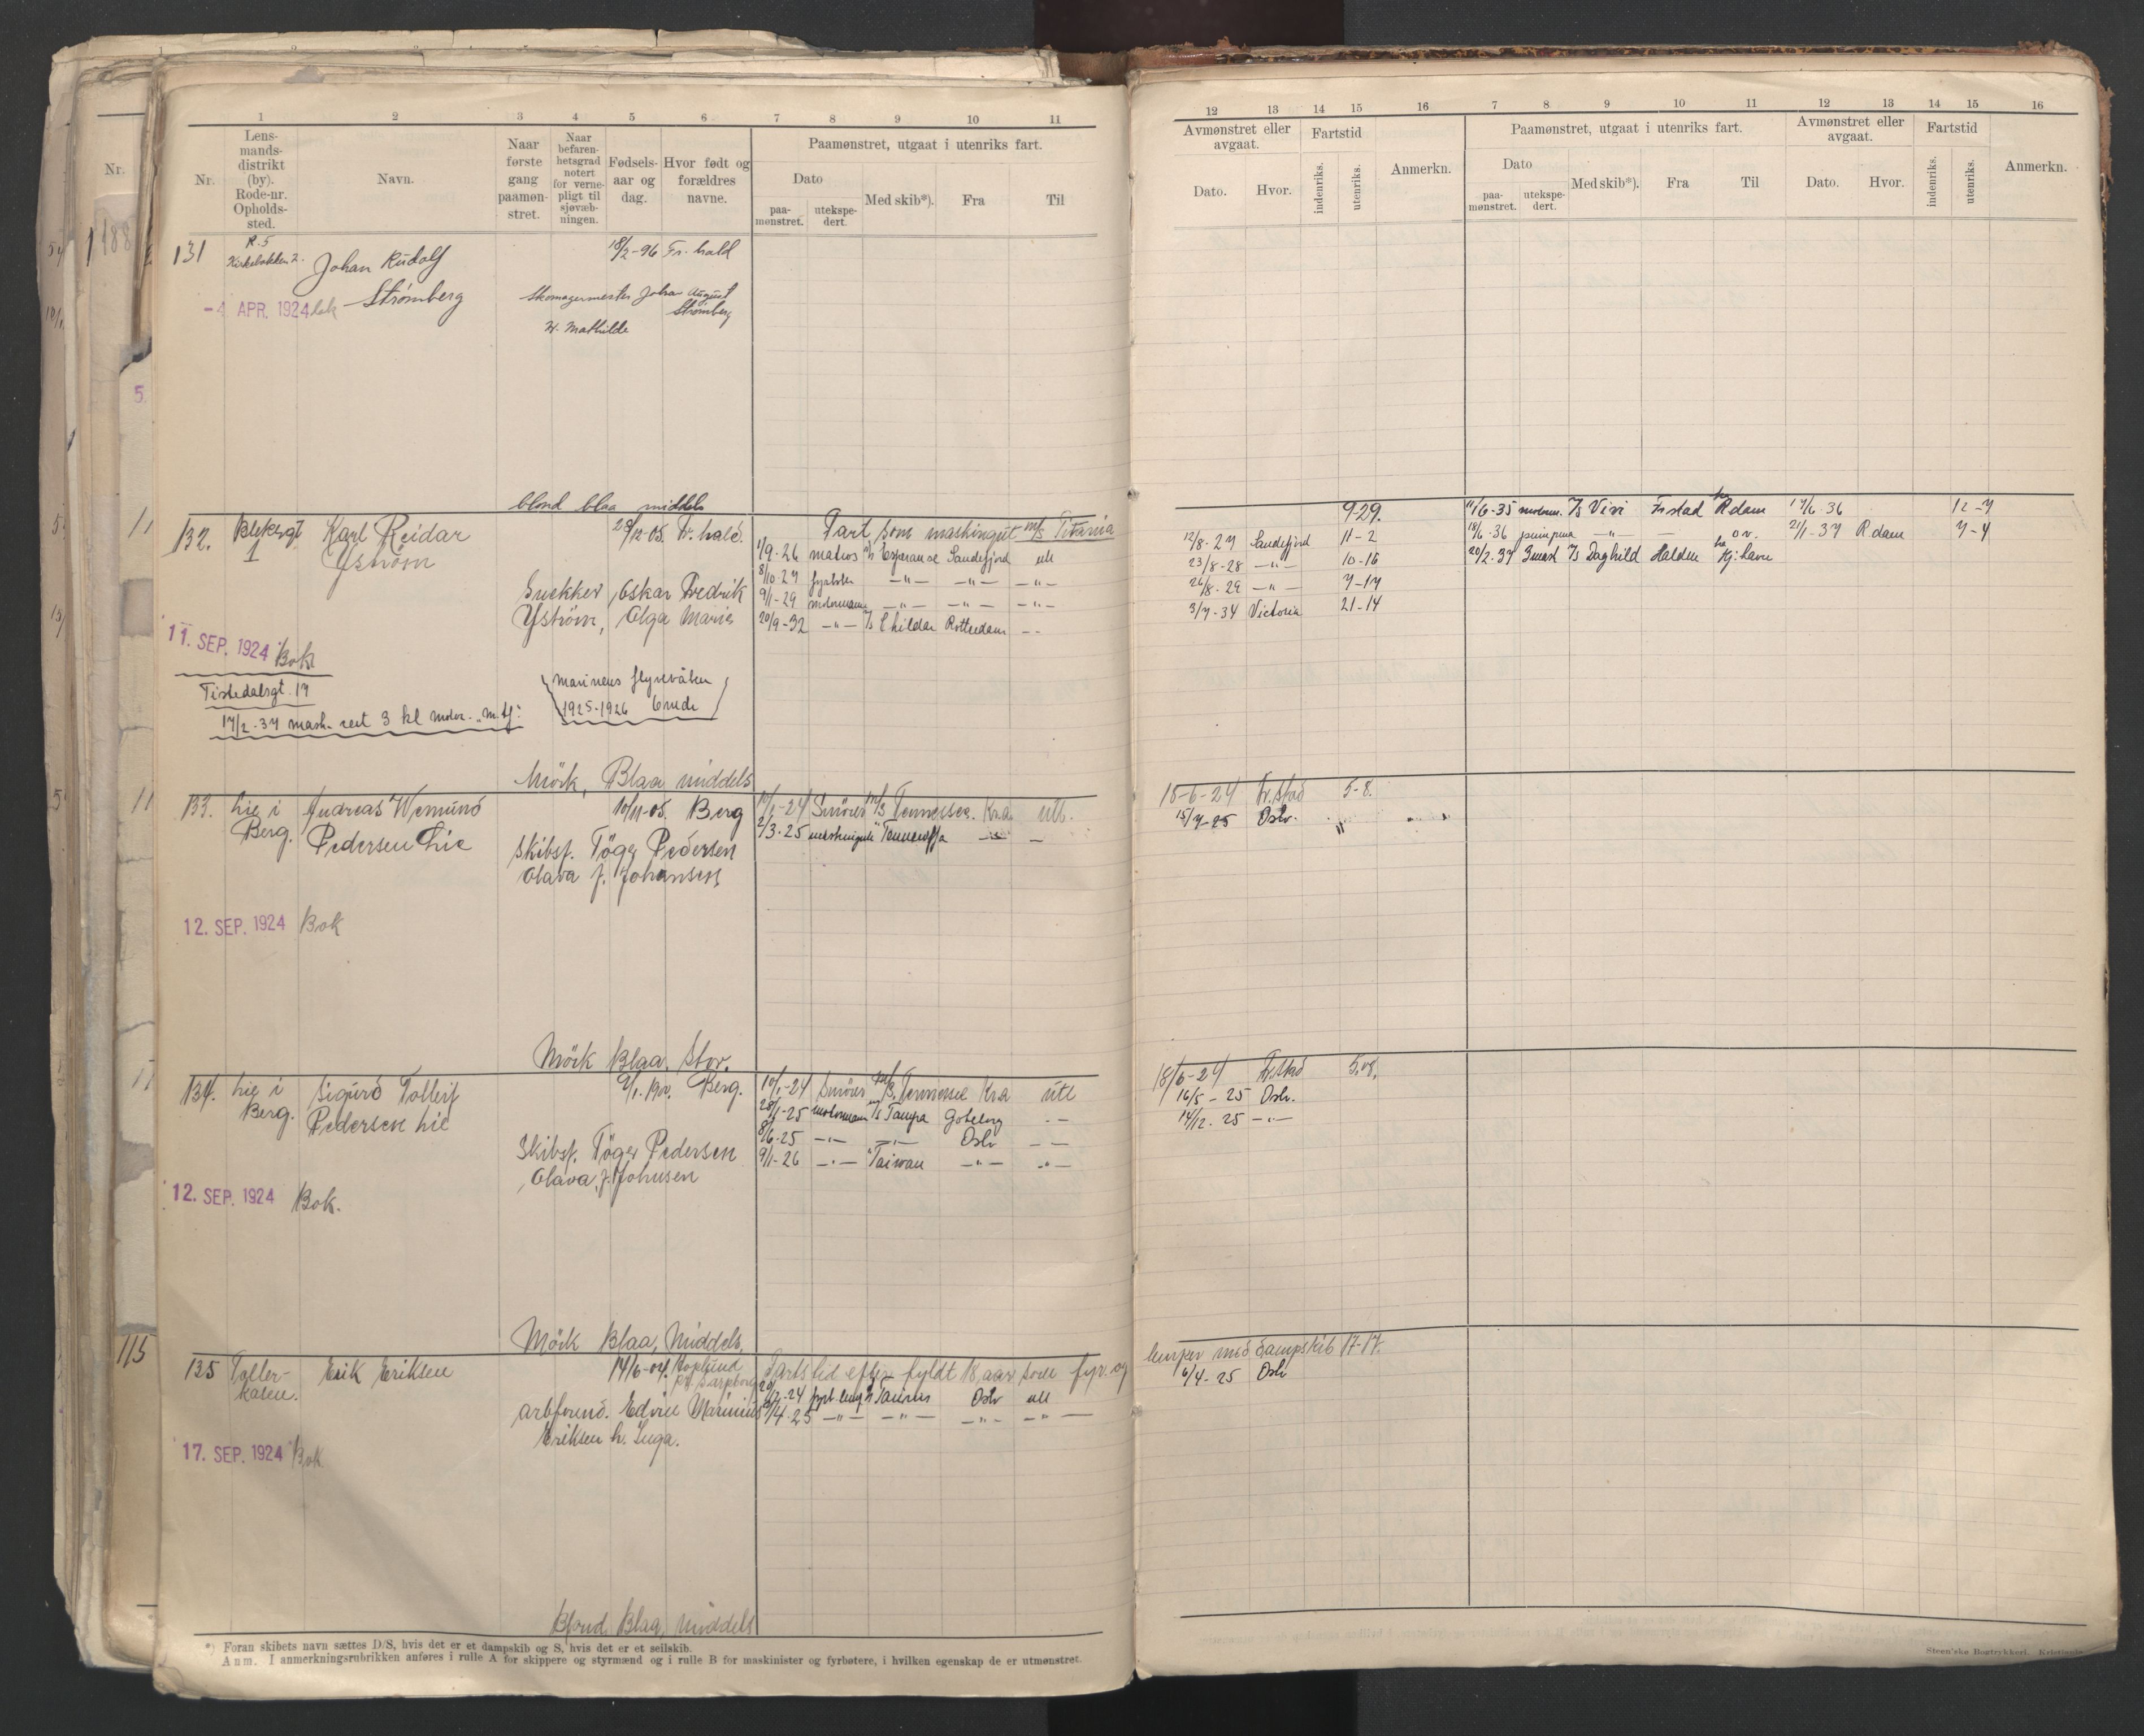 1 2 3 4 5 6 7 8 9 10 11
Nr. Lensmandsdistrikt (by). Rode-nr. Opholdssted. Navn. Naar første gang paamønstret. Naar befarenhetsgrad notert for vernepligt til sjøvæbningen. Fødselsaar og dag. Hvor født og forældres navne. Paamønstret, utgaat i utenriks fart.
Dato
paamønstret. utekspedert. Med skib*). Fra Til
131 R. 5 Kirkebakken 2. Johan Rudolf 18/2-96 Fr. hald
Strømberg Skomagermester Johan August
Strømberg
- 4 APR. 1924
H. Mathilde
blond blaa middels
132. Blekergt. 1 Karl Reidar 28/12-05. Fr. hald. Fart som maskingut M/S Titania
Yström 1/9-26 matros Esperanse Sandefjord utl
Snekker, Oskar Fredrik 8/10-27 fyrbøter -"- -"- -"-
Yström, Olga Marie 9/1-29 motormann -"- -"- -"-
20/9-32 -"- Childar Rotterdam - -
11. SEP. 1924 Bok
Tistedalsgt. 17
17/2-37 mask. sert 3 kl motor
marinens flyvevåben
1925-1926
Mörk, Blaa middels
133. Lie i Berg. Andreas Wemund 10/11-05. Berg 10/1-24 Smører M/S Tennessee. Kra. utl.
Pedersen Lie 2/3-25 maskingut
Skibsf. Töger Pedersen
Olava f. Johansen
12. SEP. 1924 Bok
Mörk Blaa, Stor.
134. Lie i Berg. Sigurd Tollerf 9/1. 1902. Berg. 10/1-24 Smører M/S Tennessee Kra utl
Pedersen Lie 28/1-25 motormann M/S Tampa Goteborg - -
8/6-25 -"- -"- Oslo - -
Skibsf. Töger Pedersen 9/1-26 -"- Taiwan -"- -"-
Olava f. Johnsen
12. SEP. 1924 Bok.
Mörk Blaa, Middels,
135 Tollerkasen. Erik Eriksen 14/6-04. Fartstid efter fyldt 18 aar som fyr. og
Oslo utl
arbformd. Edvin Marinius 9/4-25 -"- -"- -"- -"-
Eriksen h. Inga.
17. SEP. 1924 Bok
Blond Blaa, Middels
*) Foran skibets navn sættes D/S, hvis det er et dampskib og S, hvis det er et seilskib.
Anm. I anmerkningsrubrikken anføres i rulle A for skippere og styrmænd og i rulle B for maskinister og fyrbøtere, i hvilken egenskap de er utmønstret.
12 13 14 15 16 7 8 9 10 11 12 13 14 15 16
Avmønstret eller avgaat. Fartstid Anmerkn. Paamønstret, utgaat i utenriks fart. Avmønstret eller avgaat. Fartstid Anmerkn.
Dato. Hvor. indenriks. utenriks. Dato paamønstret. utekspedert. Med skib*). Fra Til Dato. Hvor. indenriks. utenriks.
9-29. 11/6-35 motorm. Vivi Frstad Rdam 17/6-36 12-7
12/8-27 Sandefjord 11-2 18/6-36 -"- - 21/1-37 Rdam 7-4
23/8-28 -"- 10-16 20/2-37 3 mask Daghild Halden Kj.havn
26/8-29 -"- 7-17
3/7-34 Victoria 21-14
15-6-24 Fr.stad 5-8.
15/7-25 Oslo.
18/6-24 Fr.stad 5.08.
16/5-25 Oslo.
14/12-25 -"-
lemper med dampskib 17-17.
6/4-25 Oslo
Steen'ske Bogtrykkeri.
1188
115